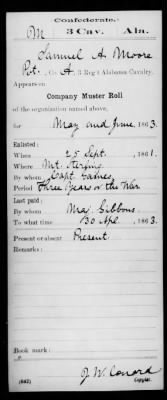 Confederate.
M 3 Cav. Ala.
Samuel A. Moore
Pvt., Co. A, 3 Reg't Alabama Cavalry.
Appears on
Company Muster Roll
of the organization named above,
for May and June, 1863.
Enlisted:
When 25 Sept., 1861.
Where Mt. Sterling
By whom Capt. Gaines
Period Three Years or the War
Last paid:
By whom Maj. Gibbons
To what time 30 Apl, 1863.
Present or absent Present
Remarks:
Book mark:
(642) J. W. Conard
Copyist.